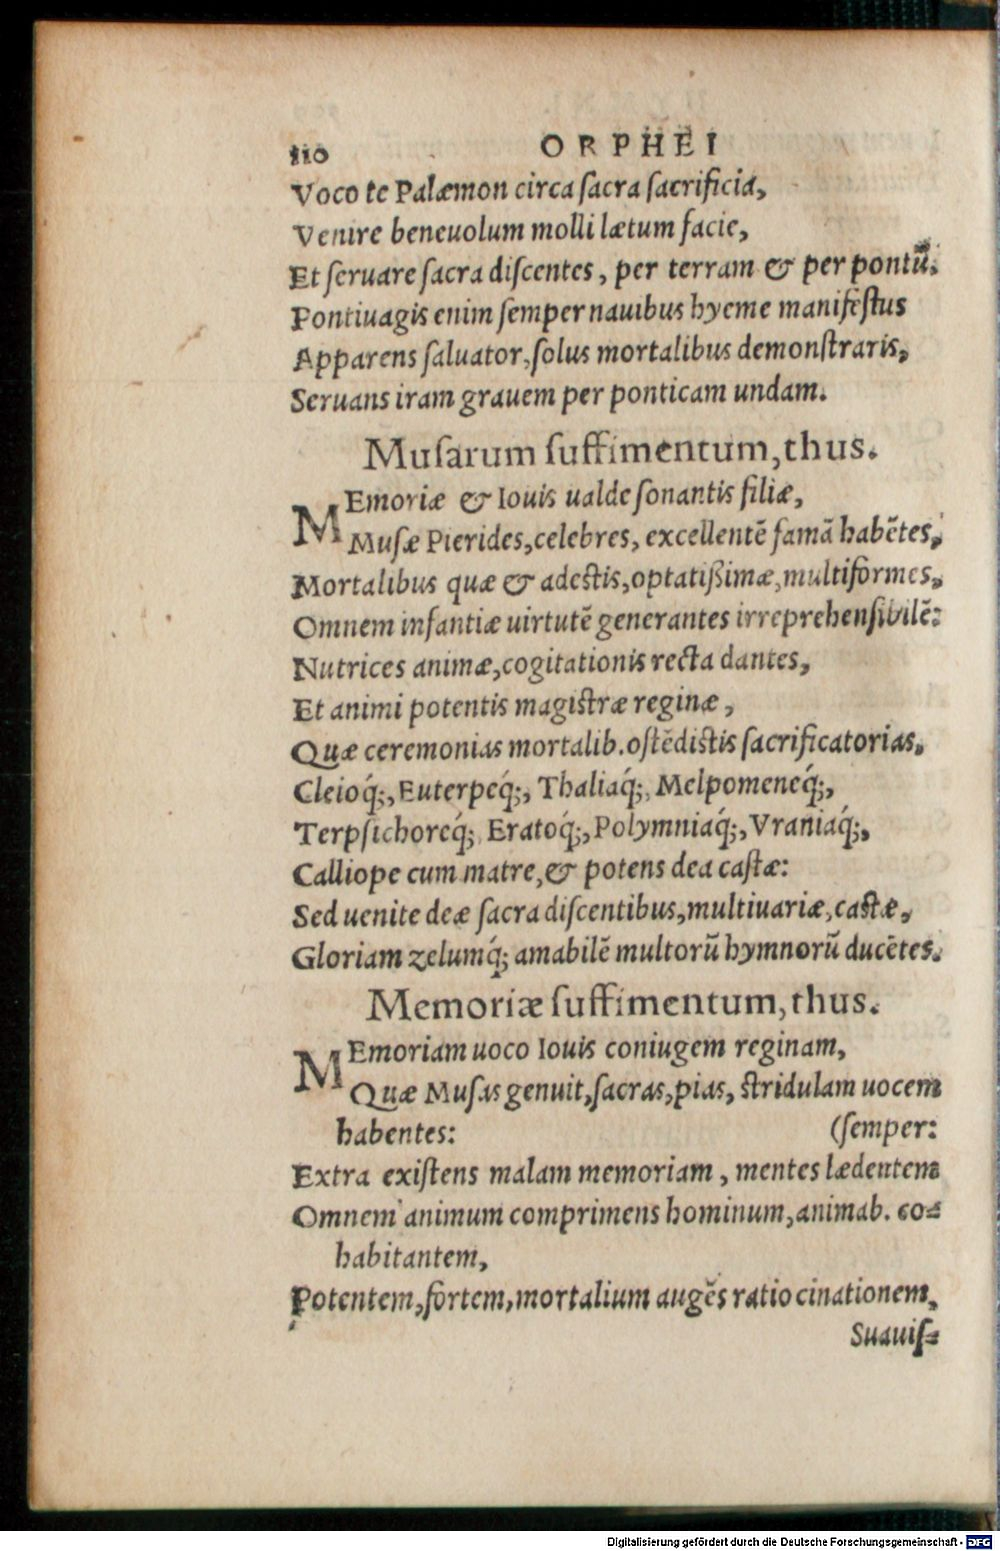 110 ORPHEI
Voco te Palæmon circa ſacra ſacrificia,
Venire beneuolum molli lætum facie,
Et ſeruare ſacra diſcentes, per terram & per pontũ.
Pontiuagis enim ſemper nauibus hyeme manifeſtus
Apparens ſaluator, ſolus mortalibus demonſtraris,
Seruans iram grauem per ponticam undam.
Muſarum ſuffimentum, thus.
MEmoriæ & Iouis ualde ſonantis filiæ,
Muſæ Pierides, celebres, excellentẽ famã habẽtes,
Mortalibus quæ & adeſtis, optatißimæ, multiformes,
Omnem infantiæ uirtutẽ generantes irreprehenſibilẽ:
Nutrices animæ, cogitationis recta dantes,
Et animi potentis magiſtræ reginæ,
Quæ ceremonias mortalib. oſtẽdiſtis ſacrificatorias,
Cleioq́;, Euterpeq́;, Thaliaq́;, Melpomeneq́;,
Terpſichoreq́;, Eratoq́;, Polymniaq́;, Vraniaq́;,
Calliope cum matre, & potens dea caſtæ:
Sed uenite deæ ſacra diſcentibus, multiuariæ, caſtæ,
Gloriam zelumq́; amabilẽ multorũ hymnorũ ducẽtes.
Memoriæ ſuffimentum, thus.
MEmoriam uoco Iouis coniugem reginam,
Quæ Muſas genuit, ſacras, pias, ſtridulam uocem
habentes: (ſemper:
Extra exiſtens malam memoriam, mentes lædentem
Omnem animum comprimens hominum, animab. co-
habitantem,
Potentem, fortem, mortalium augẽs ratiocinationem,
Suauiſ-
Digitalisierung gefördert durch die Deutsche Forschungsgemeinschaft - DFG